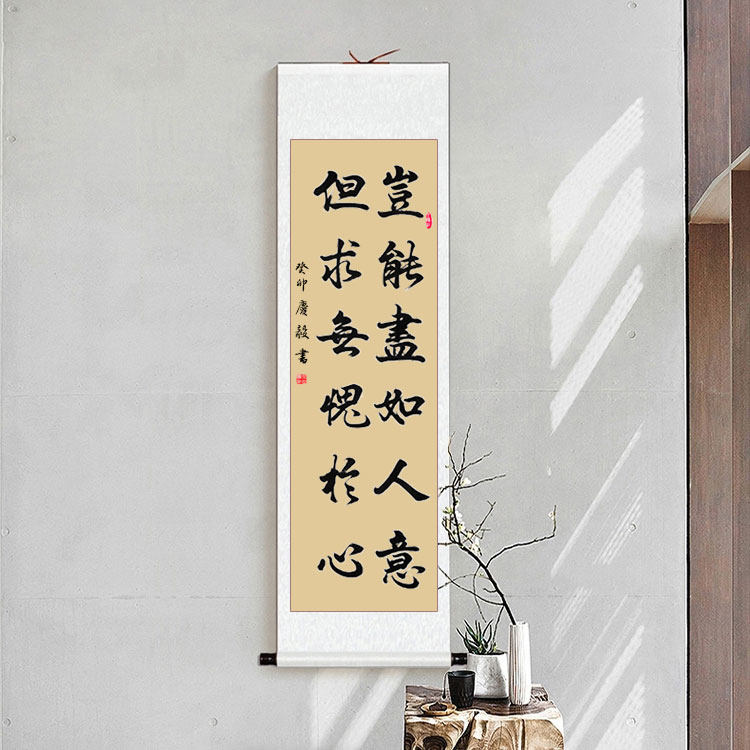 豈能盡如人意
但求無愧於心
癸卯慶毅書